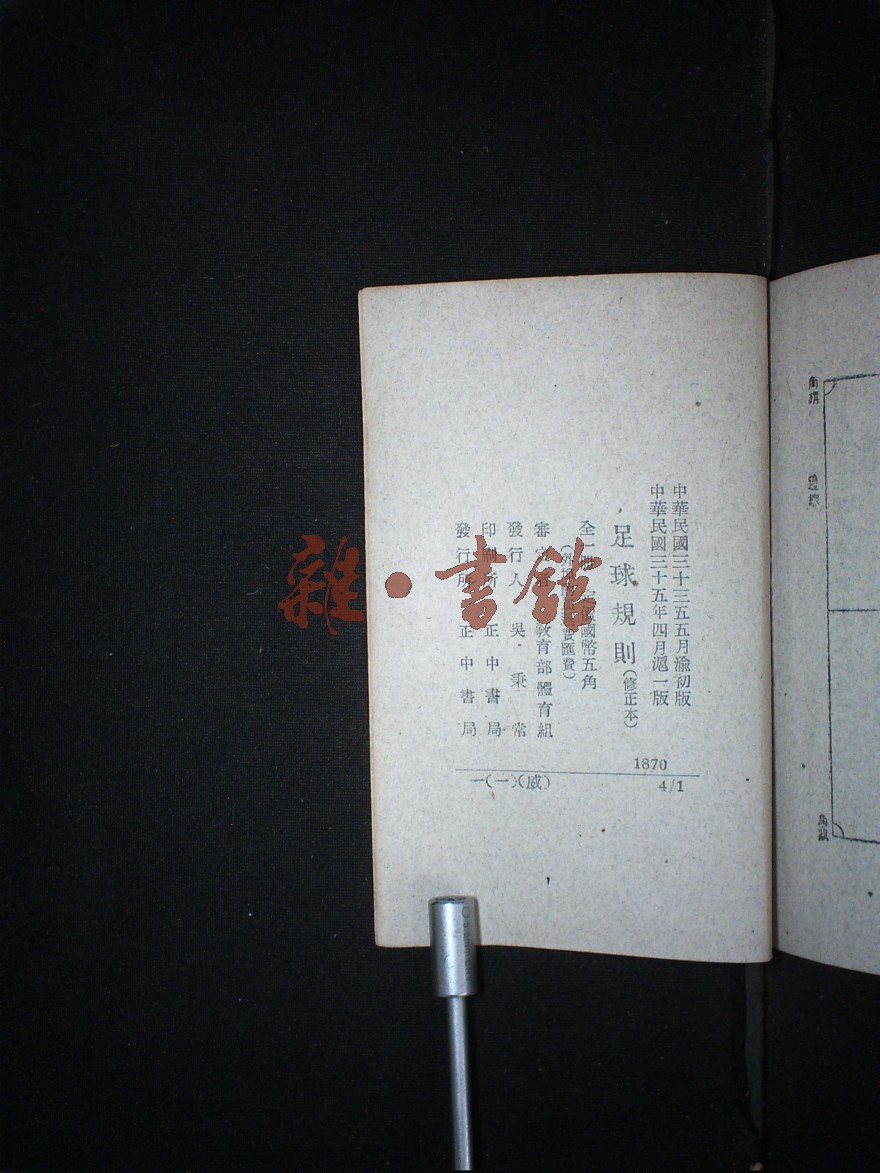 角旗
邊線
角旗
中華民國三十三五五月渝初版
中華民國三十五年四月滬一版
足球規則(修正本)
全一冊 定價國幣五角
(外埠費匯費)
審定者 教育部體育組
發行人 吳秉常
印刷所 正中書局
發行所 正中書局
1870
4/1
一(一)(威)
雜·書館